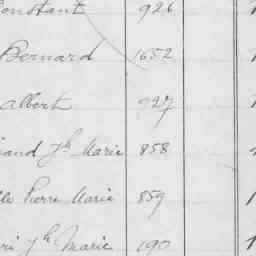 Constant 926
Bernard 1652
Albert 927
Jh Marie 858
Pierre Marie 859
Jh Marie 190